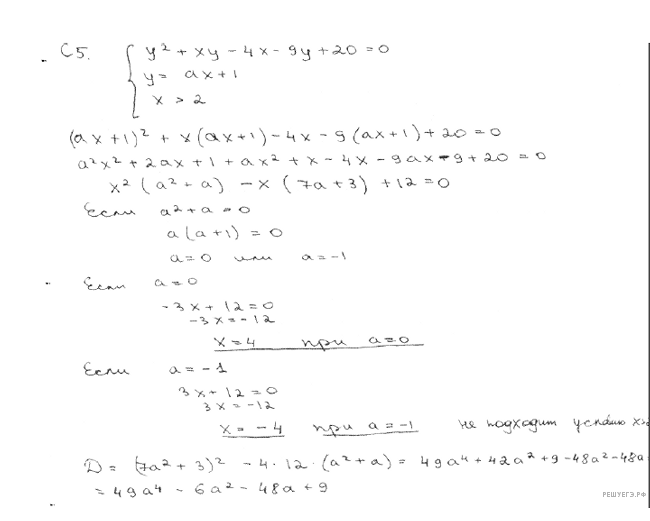 С5. { y² + xy - 4x - 9y + 20 = 0
y = ax + 1
x > 2
(ax + 1)² + x(ax + 1) - 4x - 9(ax + 1) + 20 = 0
a²x² + 2ax + 1 + ax² + x - 4x - 9ax - 9 + 20 = 0
x²(a² + a) - x(7a + 3) + 12 = 0
Если a² + a = 0
a(a + 1) = 0
a = 0 или a = -1
Если a = 0
-3x + 12 = 0
-3x = -12
x = 4 при a = 0
Если a = -1
3x + 12 = 0
3x = -12
x = -4 при a = -1 не подходит условию x>
D = (7a² + 3)² - 4·12·(a² + a) = 49a⁴ + 42a² + 9 - 48a² - 48a
= 49a⁴ - 6a² - 48a + 9
РЕШУЕГЭ.РФ